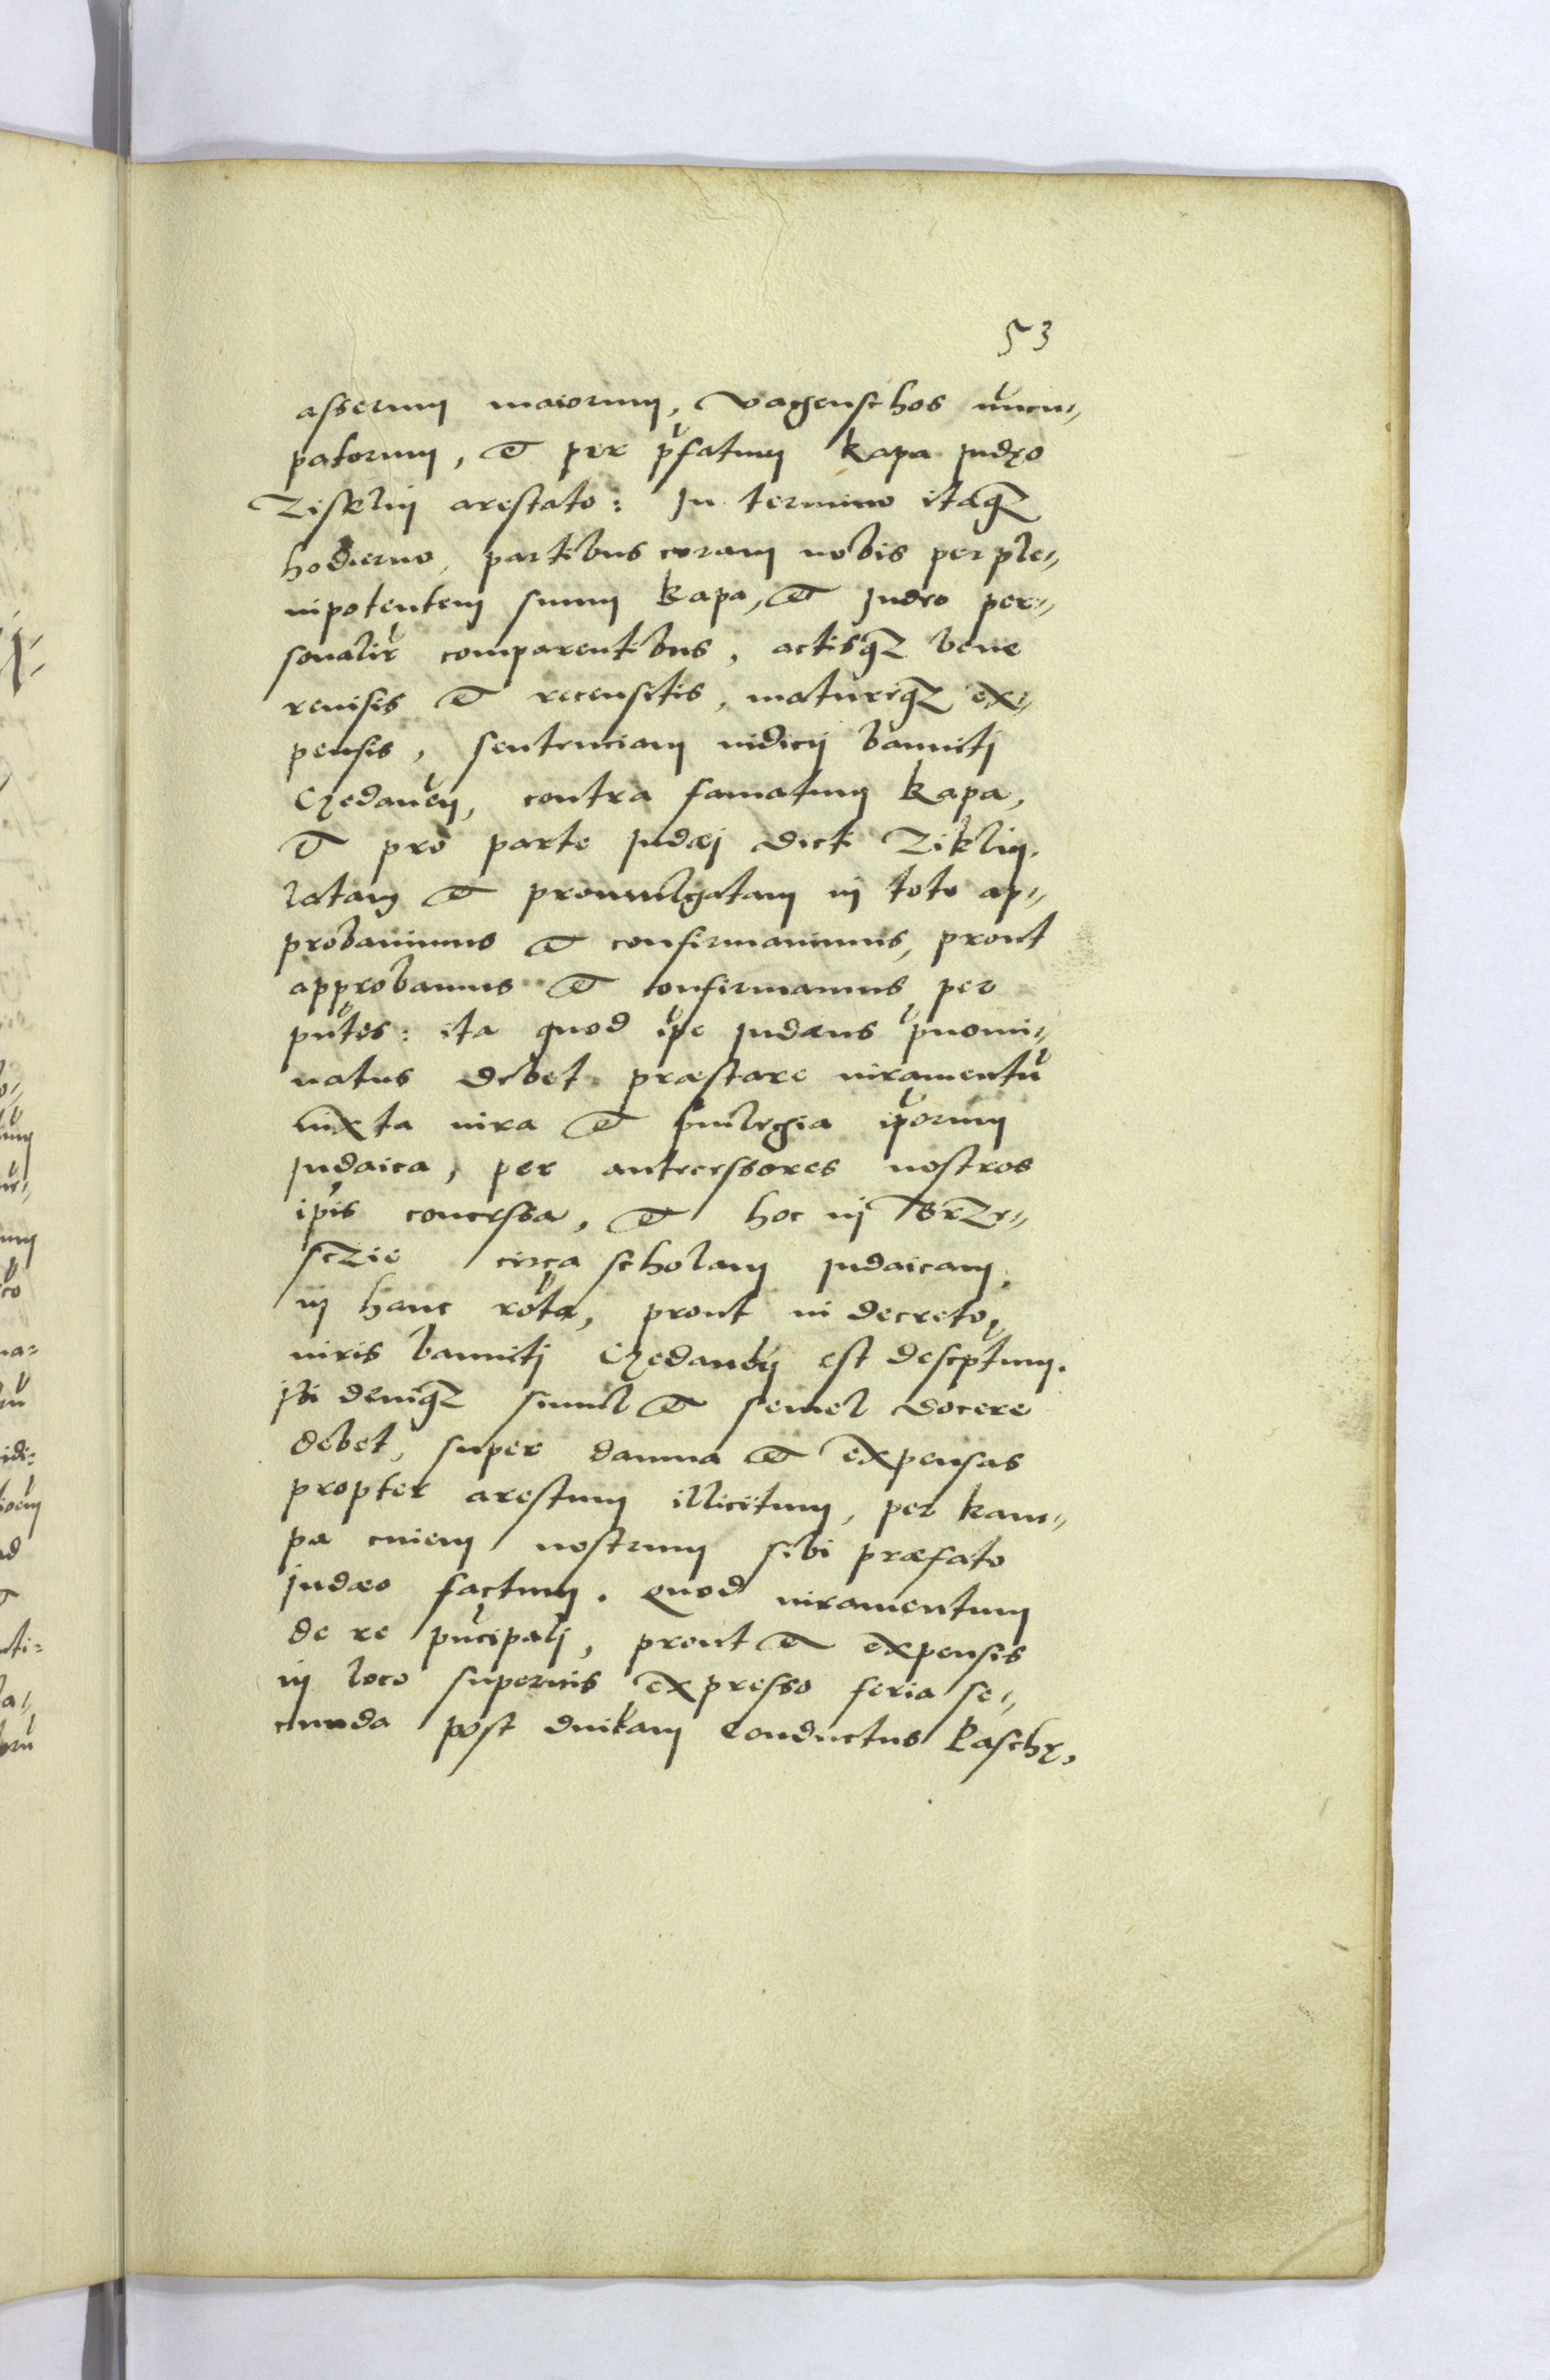 53
asserum maiorum, vagenschos nuncu-
patorum, et per p̃fatum Kapa Judęo
Zisklin arestato: In termino itaq̃
hodierno, partibus coram nobis per ple-
nipotentem suum Kapa, et Judeo per-
sonalir̃ comparentibus, actisq̃ bene
reuisis et recensitis, matureq̃ ex-
pensis, sentenciam iudicij banniti
Gedanen̄, contra famatum Kapa,
et pro parte Judæi dicti Ziklin.
latam et promulgatam in toto ap-
probauimus et confirmauimus, prout
approbamus et confirmamus per
pn̄tes: ita quod ip̃e Judæus p̃nomi-
natus debet præstare iuramentū
iuxta iura et priuilegia ip̃orum
Judaica, per antecessores nostros
ip̃is concessa, et hoc in Brze-
sczie circa scholam Judaicam,
in hanc rotã, prout in decreto
iuris banniti Gedanen̄ est descp̃tum.
ibi deniq̃ simul et semel docere
debet, super damna et expensas
propter arestum illicitum, per Kam-
pa ciuem nostrum sibi præfato
Judæo factum. Quod iuramentum
de re p̃ncipali, prout et expensis
in loco superius expresso feria se-
cunda post dn̄icam Conductus Paschę,